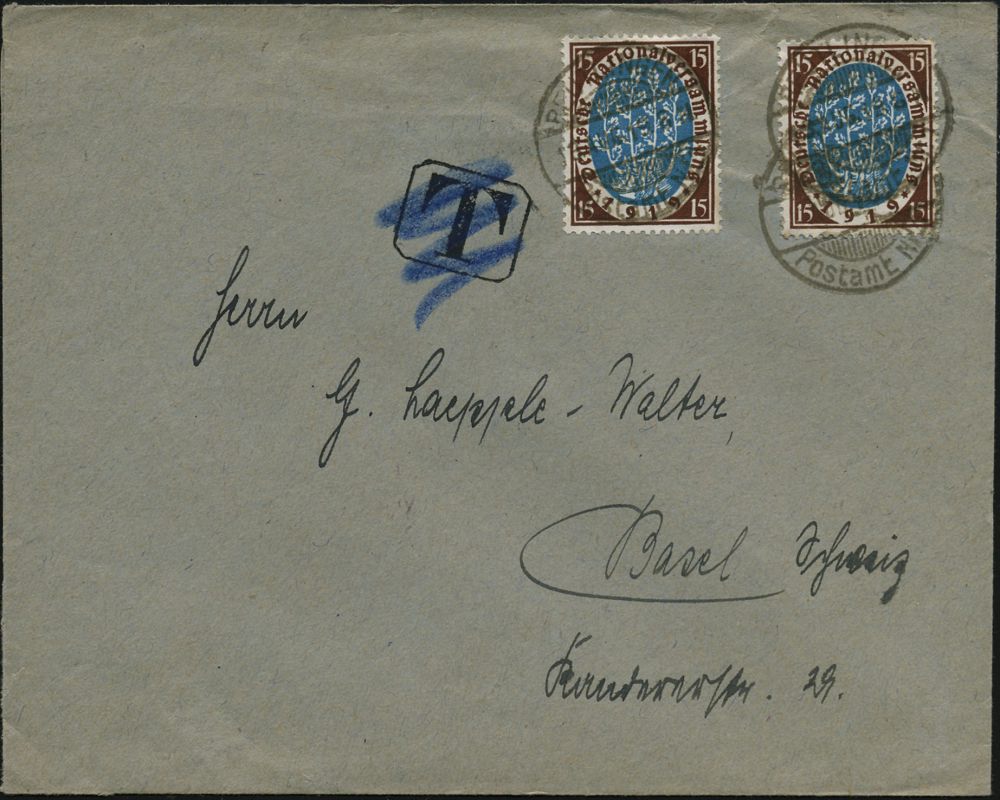 15 15
Deutsche Nationalversammlung
1919
15 15
15 15
Deutsche Nationalversammlung
1919
15 15
Postamt
T
Herrn
G. Laeppele - Walter,
Basel Schweiz
Kandererstr. 29.